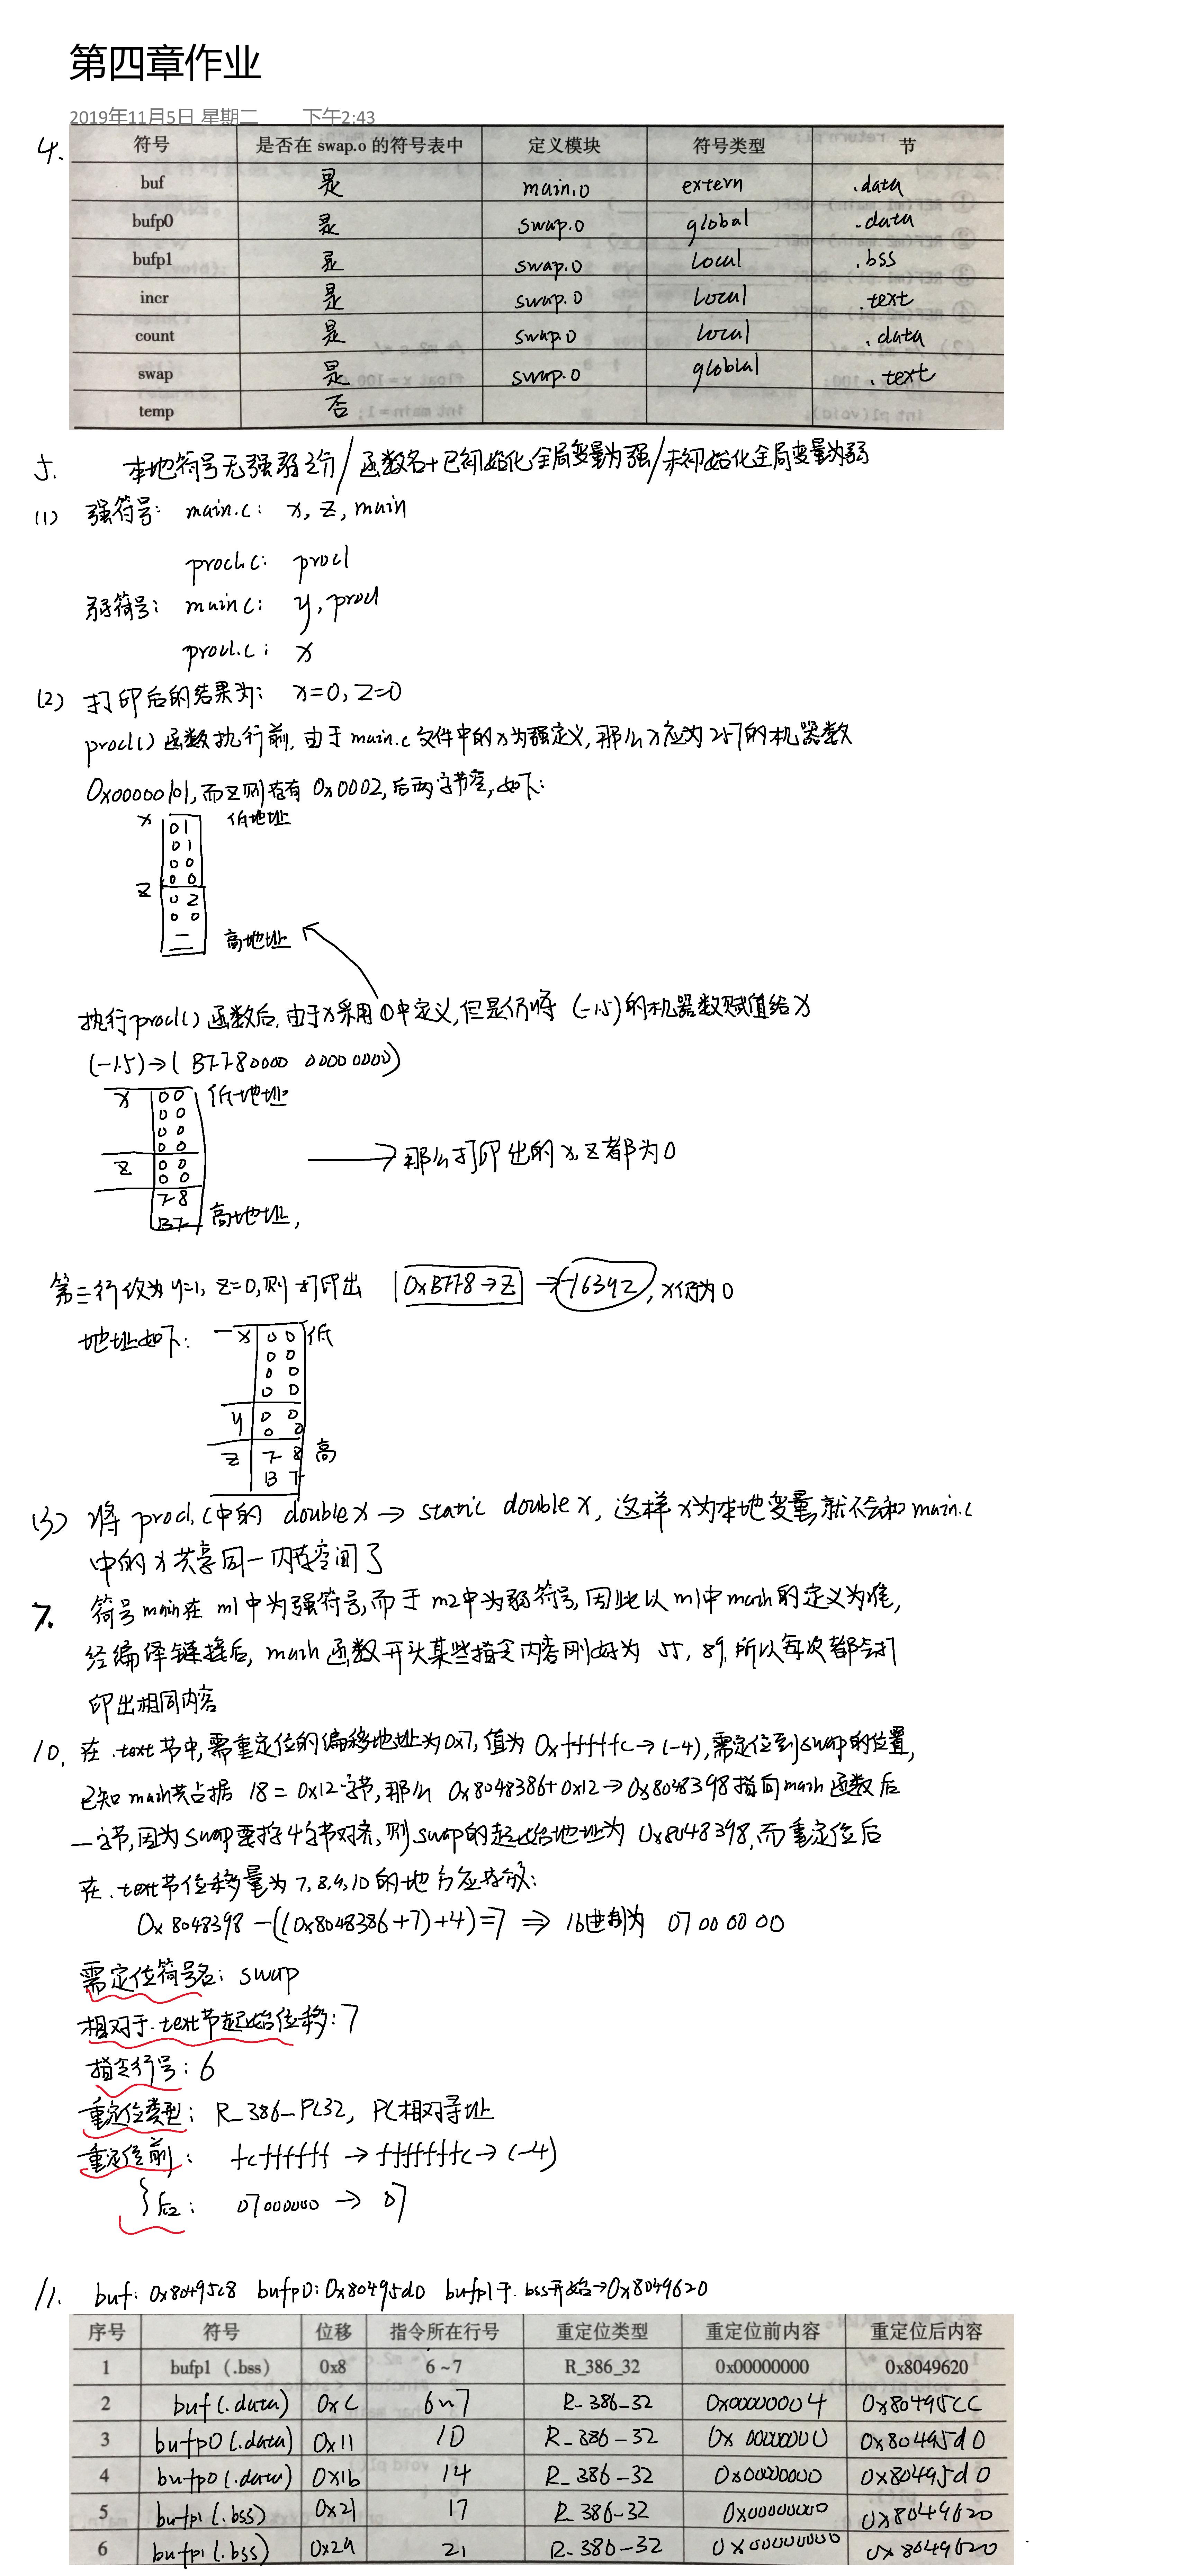 第四章作业
2019年11月5日 星期二 下午2:43
4.
符号 是否在 swap.o 的符号表中 定义模块 符号类型 节
buf 是 main.o extern .data
bufp0 是 swap.o global .data
bufp1 是 swap.o local .bss
incr 是 swap.o local .text
count 是 swap.o local .data
swap 是 swap.o globlal .text
temp 否
5. 本地符号无强弱之分/函数名+已初始化全局变量为强/未初始化全局变量为弱
(1) 强符号: main.c: x, z, main
proc1.c: proc1
弱符号: main.c: y, proc1
proc1.c: x
(2) 打印后的结果为: x=0, z=0
proc1()函数执行前,由于main.c文件中的x为强定义,那么x应为257的机器数
0x00000101,而z则存有0x0002,后两字节空,如下:
x 01 低地址
01
00
00
z 02
00
高地址
执行proc1()函数后,由于x采用①中定义,但是仍将(-1.5)的机器数赋值给x
(-1.5)→(BFF80000 00000000)
x 00 低地址
00
00
00
z 00
00
F8
BF 高地址,
→那么打印出的x,z都为0
第三行改为y=1, z=0,则打印出 0xBFF8→z →-16392, x仍为0
地址如下: x 00 低
00
00
00
y 00
00
z F8 高
BF
(3) 将proc1.c中的double x → static double x, 这样x为本地变量,就不会和main.c
中的x共享同一内存空间了
7. 符号main在m1中为强符号,而于m2中为弱符号,因此以m1中main的定义为准,
经编译链接后, main函数开头某些指令内容刚好为 55, 89, 所以每次都会打
印出相同内容
10. 在.text节中,需重定位的偏移地址为0x7,值为0xfffffc→(-4),需定位到swap的位置,
已知main共占据 18=0x12字节,那么 0x8048386+0x12→0x8048398指向main函数后
一字节,因为swap要按4字节对齐,则swap的起始地址为0x8048398,而重定位后
在.text节位移量为7,8,9,10的地方应存放:
0x8048398-((0x8048386+7)+4)=7 ⇒ 16进制为 07 00 00 00
需定位符号名: swap
相对于.text节起始位移: 7
指令行号: 6
重定位类型: R_386_PC32, PC相对寻址
重定位前: fcffffff → fffffffc → (-4)
后: 07000000 → 07
11. buf: 0x80495c8 bufp0: 0x80495d0 bufp1于.bss开始→0x8049620
序号 符号 位移 指令所在行号 重定位类型 重定位前内容 重定位后内容
1 bufp1 (.bss) 0x8 6~7 R_386_32 0x00000000 0x8049620
2 buf(.data) 0xc 6~7 R_386_32 0x00000004 0x80495cc
3 bufp0(.data) 0x11 10 R_386_32 0x00000000 0x80495d0
4 bufp0(.data) 0x1b 14 R_386_32 0x00000000 0x80495d0
5 bufp1(.bss) 0x21 17 R_386_32 0x00000000 0x8049620
6 bufp1(.bss) 0x2a 21 R_386_32 0x00000000 0x8049620